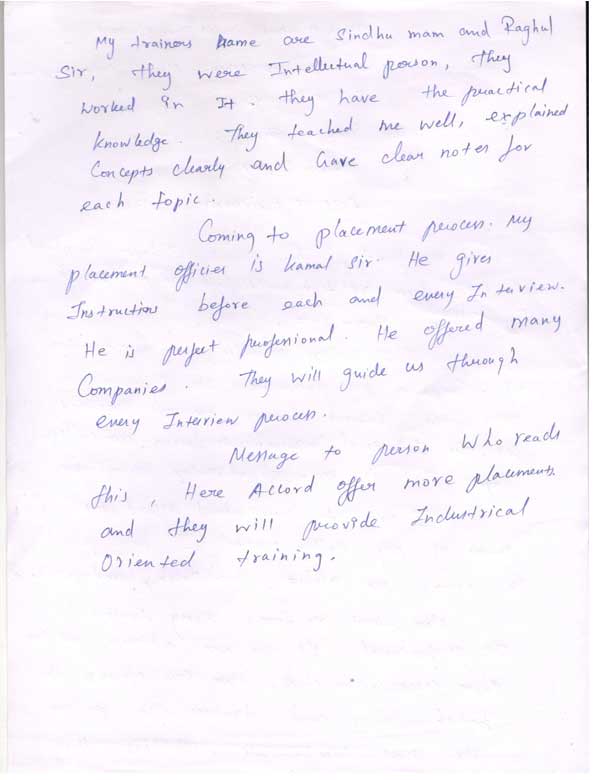 My trainers Name are Sindhu mam and Raghul
Sir, they were Intellectual person, They
worked in It. they have the practical
knowledge. They teached me well, explained
Concepts clearly and Gave clear notes for
each topic.
Coming to placement process. My
placement officier is kamal sir. He gives
Instructions before each and every Interview.
He is perfect professional. He offered many
Companies. They will guide us through
every Interview process.
Message to person who reads
this, Here Accord offer more placements
and they will provide Industrical
Oriented training.